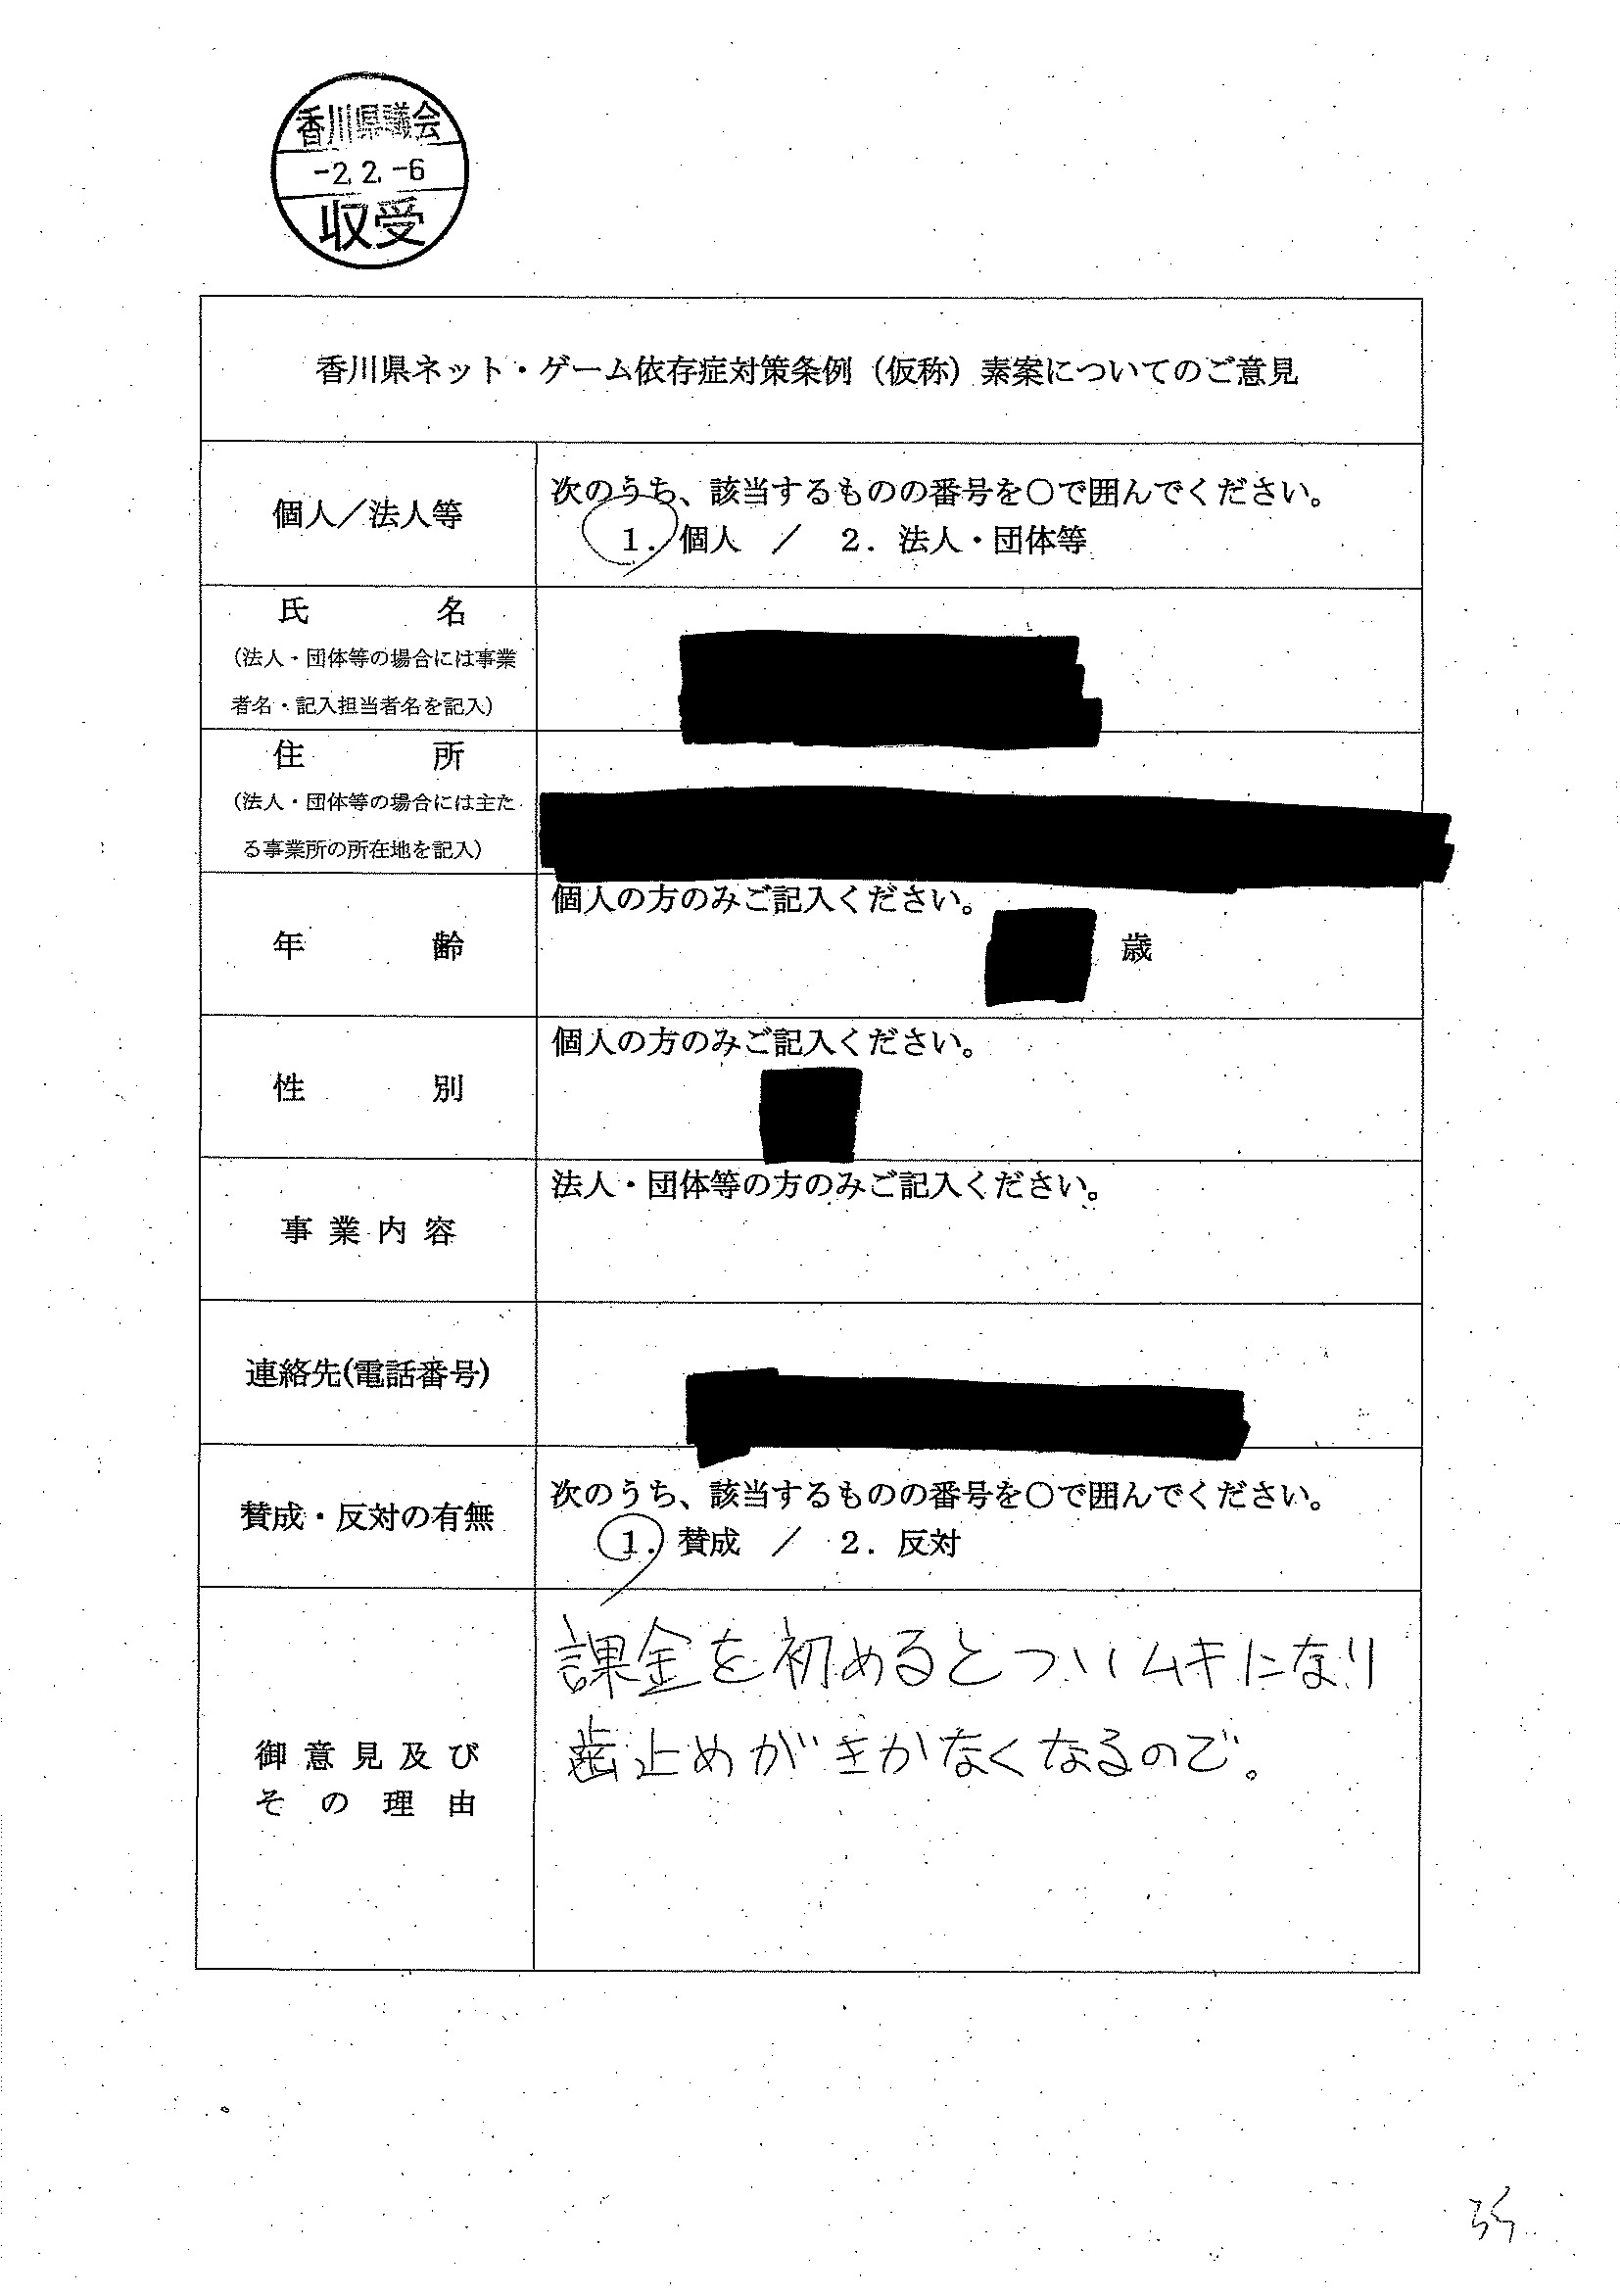 香川県議会
-2.2.-6
収受
香川県ネット・ゲーム依存症対策条例（仮称）素案についてのご意見
個人／法人等
次のうち、該当するものの番号を○で囲んでください。
1．個人　／　2．法人・団体等
氏　名
（法人・団体等の場合には事業
者名・記入担当者名を記入）
住　所
（法人・団体等の場合には主た
る事業所の所在地を記入）
年　齢
個人の方のみご記入ください。
歳
性　別
個人の方のみご記入ください。
事業内容
法人・団体等の方のみご記入ください。
連絡先(電話番号)
賛成・反対の有無
次のうち、該当するものの番号を○で囲んでください。
1．賛成　／　2．反対
御意見及び
その理由
課金を初めるとついムキになり
歯止めがきかなくなるので。
35